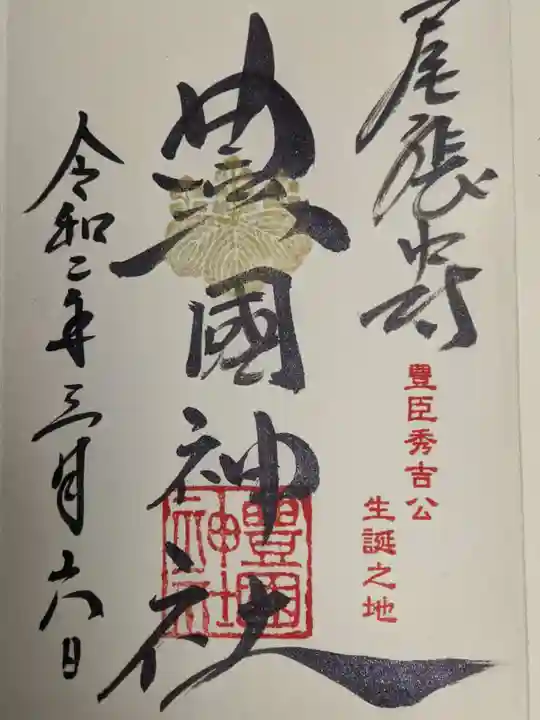 尾張中村
豊臣秀吉公
生誕之地
豊國神社
豊國神社
令和二年三月六日